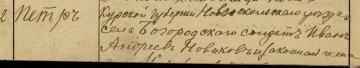 2 Петръ
Курской губернiи Новооскольскаго уезда
села Богородскаго солдатъ Иванъ
Андреевъ Новаковъ и законная жена